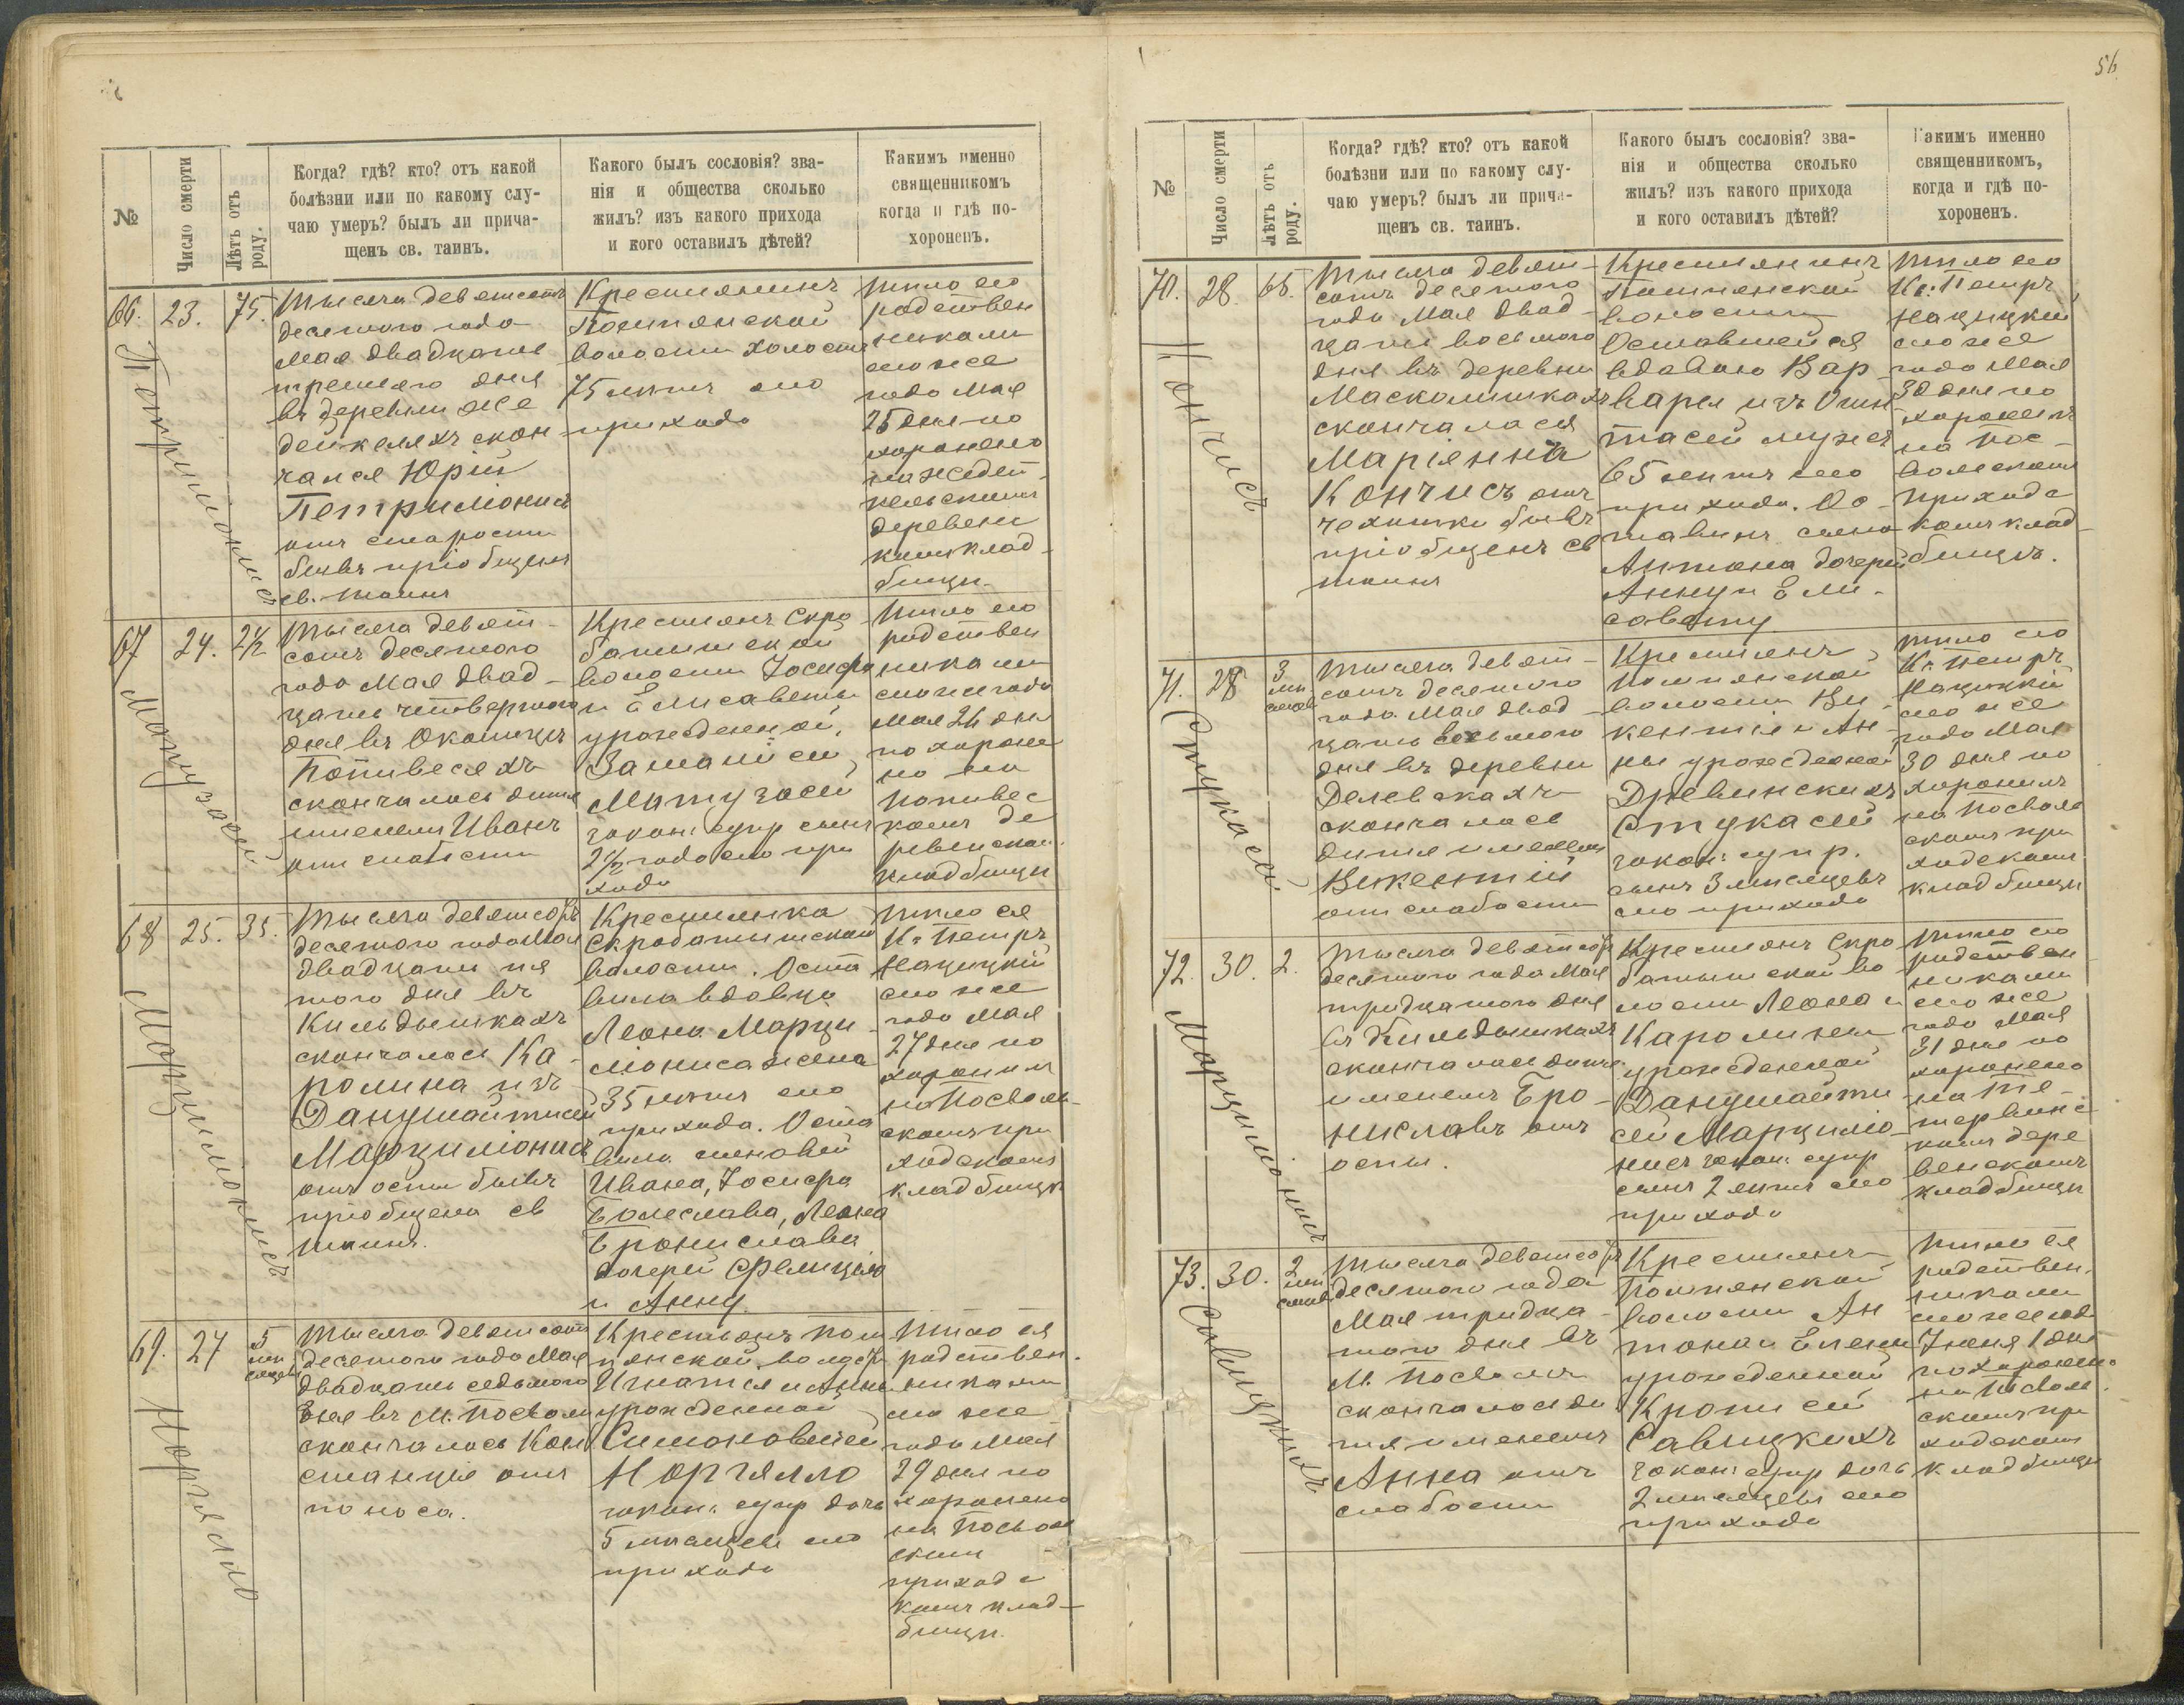 56
№
Число смерти
Лѣтъ отъ роду.
Когда? гдѣ? кто? отъ какой
болѣзни или по какому слу-
чаю умеръ? былъ ли прича-
щенъ св. таинъ.
Какого былъ сословія? зва-
нія и общества сколько
жилъ? изъ какого прихода
и кого оставилъ дѣтей?
Какимъ именно
священникомъ
когда и гдѣ по-
хороненъ.
66.
23.
75.
Петриліонисъ
Тысяча девятьсотъ
десятого года
Мая двадцать
третьяго дня
въ деревни Же
дейкеляхъ скон
чался Юрій
Петриліонисъ
отъ старости
бывъ пріобщенъ
св. таинъ
Крестьянинъ
Помпянской
волости холостъ
75 летъ сего
прихода
Тело его
родствен
никами
сего же
года Мая
25 дня по
хоронено
на Жедей
кельскомъ
деревенс
комъ клад
бищи.
67
24.
2½
Матузасъ
Тысяча девят-
сотъ десятого
года Мая двад-
цать четвертого
дня въ Околицы
Попивесяхъ
скончалось дитя
именемъ Иванъ
отъ слабости
Крестьянъ Скро
батишской
волости Іосифа
и Елисаветы
урожденной
Матузасей
закон: супр сынъ
2½ года сего при
хода
Тело его
родствен
никами
сего же года
Мая 26 дня
похороне
но на
Попивес
комъ де
ревенском
кладбищи
68
25.
35.
Марциліонисъ
Тысяча девятсотъ
десятого года Мая
двадцать пя
того дня въ
Кильдышкахъ
скончалась Ка-
ролина изъ
Данушайтисей
Марциліонисъ
отъ оспы бывъ
пріобщена св
таинъ.
Крестьянка
Скробатишской
волости. Оста
вила вдовца
Леона Марци
ліониса жена
35 летъ сего
прихода. Оста
вила сыновей
Ивана, Іосифа
Болеслава, Леона
Бронислава
дочерей Фелицію
и Анну.
Тело ея
Кс Петръ
Нацицкій
сего же
года Мая
27 дня по
хоронилъ
на Посволь-
скомъ при
ходскомъ
кладбищи
69.
27
5 мѣсяцевъ
Норгялло
Тысяча девятсотъ
десятого года Мая
двадцать седьмого
дня въ М. Посволи
скончалась Кон
станція отъ
поноса.
Крестьянъ Пом
пянской волости
Игнатія и Анны
урожденной
Симоновичей
Норгялло
закон: супр дочь
5 месяцевъ сего
прихода
Тело ея
родствен.
никами
сего же
года Мая
29 дня по
хоронено
на Посволь
скомъ
приходс
комъ клад-
бищи.
№
Число смерти
Лѣтъ отъ роду.
Когда? гдѣ? кто? отъ какой
болѣзни или по какому слу-
чаю умеръ? былъ ли прича-
щенъ св. таинъ.
Какого былъ сословія? зва-
нія и общества сколько
жилъ? изъ какого прихода
и кого оставилъ дѣтей?
Какимъ именно
священникомъ,
когда и гдѣ по-
хороненъ.
70.
28.
65.
Кончисъ
Тысяча девят-
сотъ десятого
года Мая двад-
цать восьмого
дня въ деревни
Масколишкахъ
скончалася
Маріянна
Кончисъ отъ
чахотки бывъ
пріобщенъ св
таинъ
Крестьянинъ
Помпянской
волости
Оставшейся
вдовою Вар-
65 летъ сего
прихода. Ос-
тавивъ сына
Антона дочерей
Анну и Ели-
савету
Тело его
Кс: Петръ
Нацицкій
сего же
года Мая
30 дня по
хоронилъ
на Пос-
вольскомъ
приходс
комъ клад-
бищи.
71.
28
3 мѣсяцевъ
Стукасей
Тысяча девят-
сотъ десятого
года Мая двад-
цать восьмого
дня въ деревни
Делевскахъ
скончалось
дитя именемъ
Викентій
отъ слабости
Крестьянъ
Помпянской
волости Ви-
кентія и Ан-
ны урожденной
Древинскихъ
Стукасей
закон: супр.
сынъ 3 месяцевъ
сего прихода
Тело его
Кс Петръ
Нацицкій
сего же
года Мая
30 дня по
хоронилъ
на Посволь
скомъ при
ходскомъ
кладбищи
72.
30.
2.
Марциліонисъ
Тысяча девятсотъ
десятого года Мая
тридцатого дня
въ Кильдышкахъ
скончалось дитя
именемъ Бро-
ниславъ отъ
оспы.
Крестьянъ Скро
батишской во
лости Леона и
Каролины
урожденной
Данушайти
сей Марциліо-
нисъ закон: супр
сынъ 2 летъ сего
прихода
Тело его
родствен
никами
сего же
года Мая
31 дня по
хоронено
на Те-
тервинс
комъ дере
венскомъ
кладбищи
73.
30.
2 мѣсяцевъ
Савицкихъ
Тысяча девятсотъ
десятого года
Мая тридца-
того дня въ
М. Посволи
скончалось ди
тя именемъ
Анна отъ
слабости
Крестьянъ
Помпянской
волости Ан
тона и Елены
урожденной
Крописей
Савицкихъ
закон: супр дочь
2 месяцевъ сего
прихода
Тело ея
родствен.
никами
сего же года
Іюня 1 дня
похоронено
на Посволь
скомъ при
ходскомъ
кладбищи